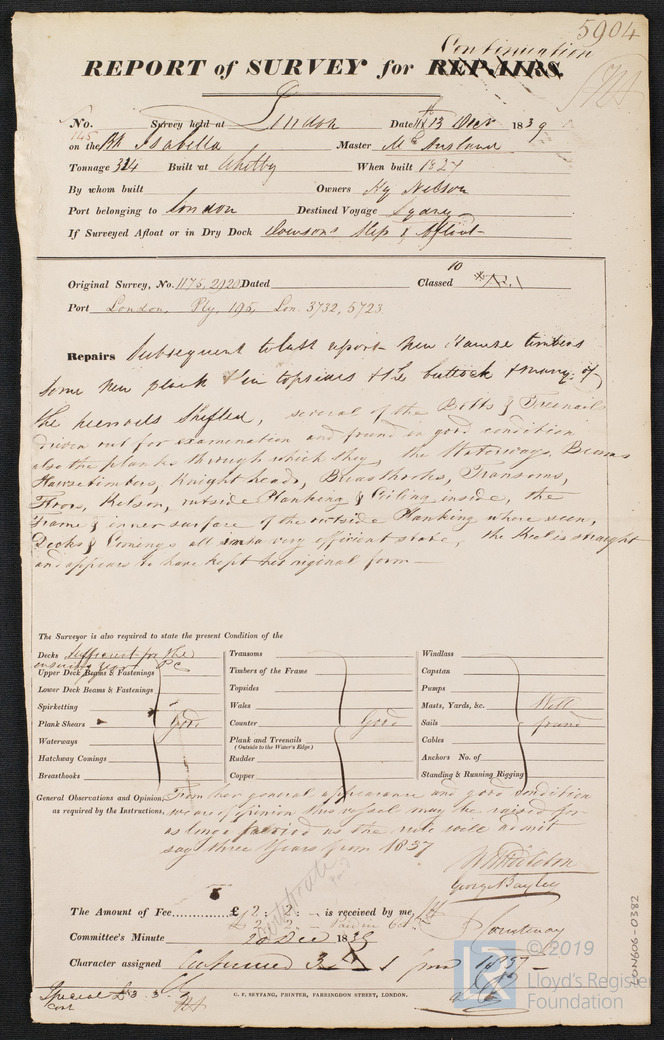 5904
Continuation
REPORT of SURVEY for REPAIRS.
No. 145 Survey held at London Date 13 Decr 1839
on the Bk Isabella Master
Tonnage 324 Built at Whitby When built 1827
By whom built Owners Hy Nelson
Port belonging to London Destined Voyage Sydney
If Surveyed Afloat or in Dry Dock Dowsons Slip & Afloat
Original Survey, No. 1175, 2020 Dated Classed 10 A.1
Port London, Ply 195, Lon. 3732, 5723
Repairs Subsequent to last report New Hawse timbers
some new plank in topsides & the buttock & many of
the treenails shifted, several of the Bolts & Treenails
driven out for examination and found in good condition
also the planks through which they, the Waterways, Beams
Hawsetimbers, Knightheads, Breasthooks, Transoms,
Floors, Kelson, outside Planking & Ceiling inside, the
Frame & inner surface of the outside Planking where seen,
Decks & Comings all in a very efficient state, the Keel is straight
and appears to have kept her original form
The Surveyor is also required to state the present Condition of the
Decks sufficient for the
ensuing year
Upper Deck Beams & Fastenings
Lower Deck Beams & Fastenings
Spirketting
Plank Shears Good
Waterways
Hatchway Comings
Breasthooks
Transoms
Timbers of the Frame
Topsides
Wales
Counter Good
Plank and Treenails
(Outside to the Water's Edge)
Rudder
Copper
Windlass
Capstan
Pumps
Masts, Yards, &c. Well
Sails found
Cables
Anchors No. of
Standing & Running Rigging
General Observations and Opinion, From her general appearance and good condition
as required by the Instructions, we are of opinion this vessel may be raised for
as long a period as the rule will admit
say three Years from 1837
George Bayley
Certificate
The Amount of Fee £2: 2: - is received by me,
Courtenay
Committee's Minute 20 Dec 1839
Character assigned Continued 3 A 1 from 1837
Special £3.3.
C. F. SEYFANG, PRINTER, FARRINGDON STREET, LONDON.
LON606-0382
© 2019
Lloyd's Register
Foundation